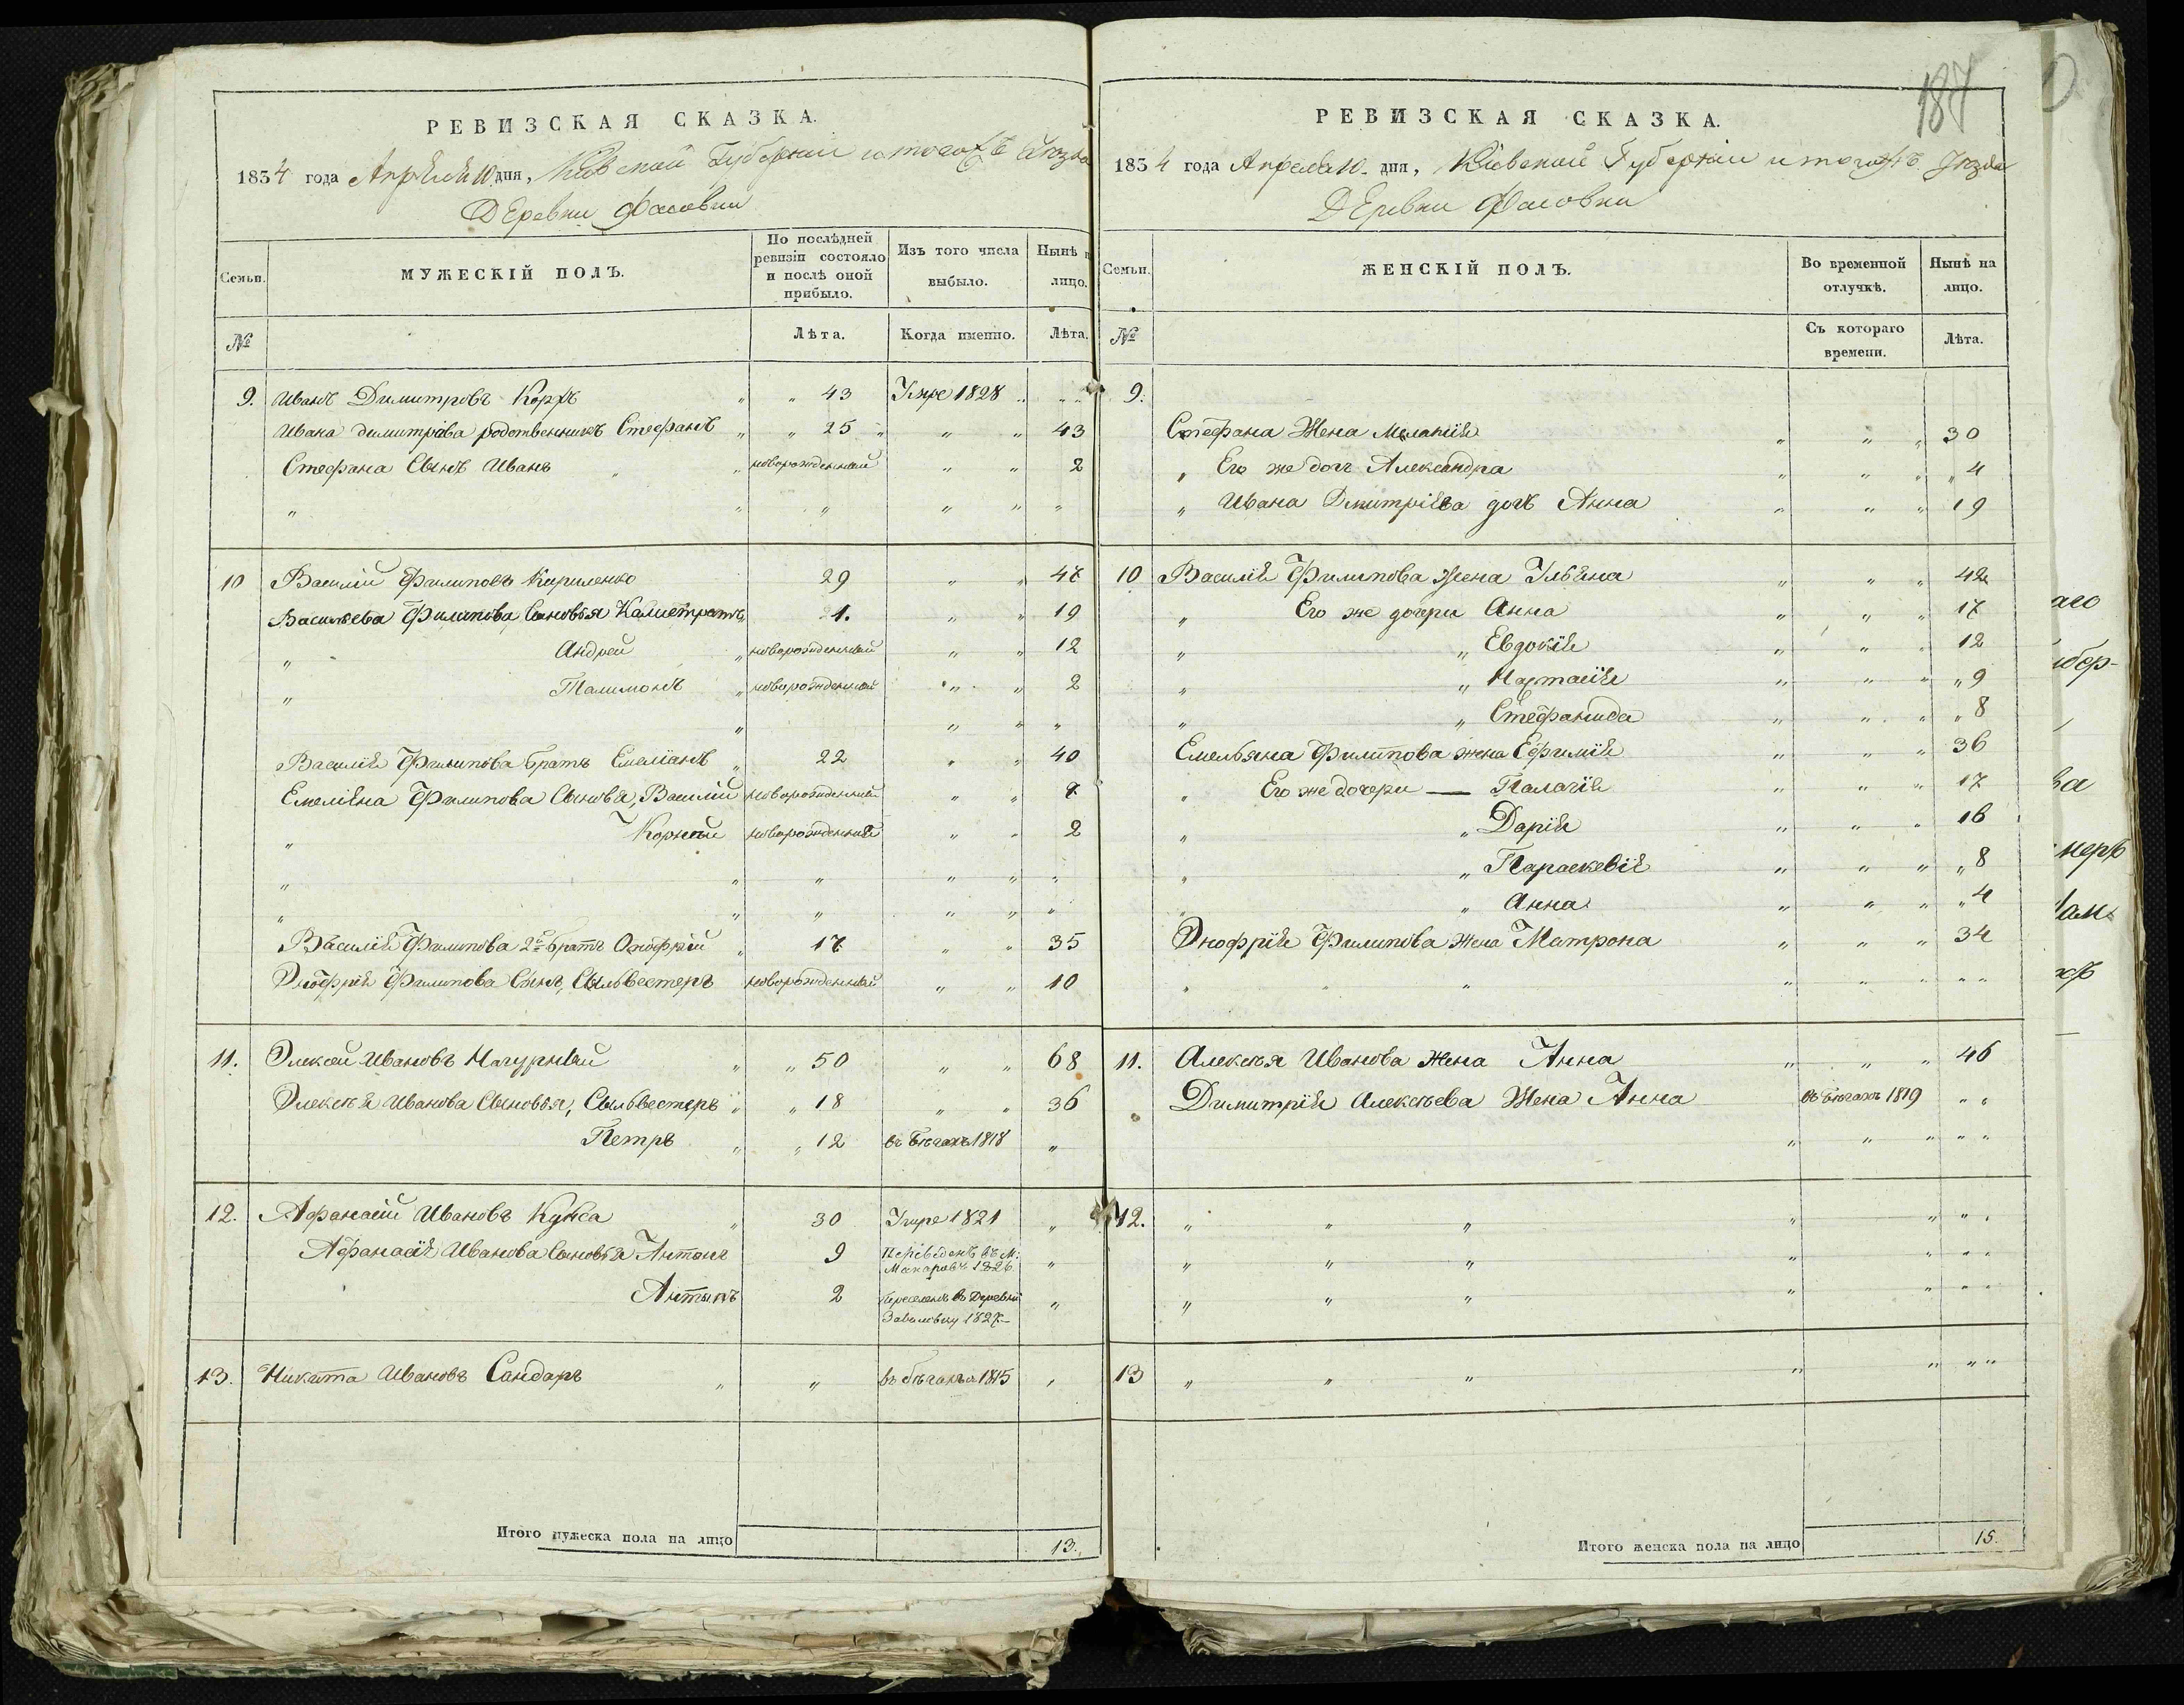 РЕВИЗСКАЯ СКАЗКА.
1834 года Апреля 10 дня, Киевской Губернии и тогожъ Уезда
Деревни Фасовки
Семьи.
МУЖЕСКІЙ ПОЛЪ.
По послѣдней ревизіи состояло и послѣ оной прибыло.
Изъ того числа выбыло.
Нынѣ н лицо.
№
Лѣта.
Когда именно.
Лѣта.
9. Иванъ Димитровъ Коржъ " " 43 Умре 1828 " "
Ивана димитріева родственникъ Стефанъ " " 25 " " 43
Стефана Сынъ Иванъ " новорожденный " " 2
" " " " " "
10 Василій Филиповъ Кириленко 29 " " 47
Васильева Филипова Сыновья Калистратъ, 1. " " 19
" Андрей " новорожденный " " 12
" Талимонъ " новорожденный " " 2
" " " "
Василія Филипова братъ Емеліанъ " 22 " " 40
Емеліяна Филипова Сыновья, Василій новорожденный " " 7
" Корней новорожденный " " 2
" " " " " "
" " " " " "
Василія Филипова 2й братъ Онофрій " 17 " " 35
Онофрія Филипова Сынъ, Сыльвестеръ новорожденный " " 10
11. Алексей Ивановъ Мачурный " " 50 " " 68
Алексѣя Иванова Сыновья, Сыльвестеръ " " 18 " " 36
Петръ " " 12 въ бѣгахъ 1818 "
12. Афанасій Ивановъ Кукса " 30 Умре 1821 "
Афанасія Иванова Сыновья Антонъ 9 Переведенъ въ М. Макаровъ 1826 "
Антипъ 2 переселенъ въ Деревню Заваловку 1827 "
13. Никита Ивановъ Сандаръ " " въ бѣгахъ с 1815 "
Итого мужеска пола на лицо 13.
187
РЕВИЗСКАЯ СКАЗКА.
1834 года Апреля 10 дня, Кіевской Губерніи и тогожъ Уезда
Деревни Фасовки
Семьи.
ЖЕНСКІЙ ПОЛЪ.
Во временной отлучкѣ.
Нынѣ на лицо.
№
Съ котораго времени.
Лѣта.
9.
Стефана Жена Меланія " " " 30
" Его же доч Александра " " " " 4
" Ивана Дмитріева дочь Анна " " " 19
10 Василія Филипова жена Ульяна " " " 42
" Его же дочери Анна " " " 17
" " Евдокія " " " 12
" " Настасія " " " " 9
" " Стефанида " " " " 8
Емельяна Филипова жена Ефимія " " " 36
" Его же дочери — Палагія " " " 17
" " Дарія " " " 16
" " Параскевія " " " " 8
" " Анна " " " " 4
Онофрія Филипова жена Матрона " " " 34
" " " " " " " "
11. Алексѣя Иванова жена Анна " " " 46
Димитрія Алексѣева Жена Анна въ бѣгахъ 1819 " "
" " " " "
12. " " " " " " "
" " " " " " "
" " " " " " "
13 " " " " " " "
Итого женска пола на лицо 15.